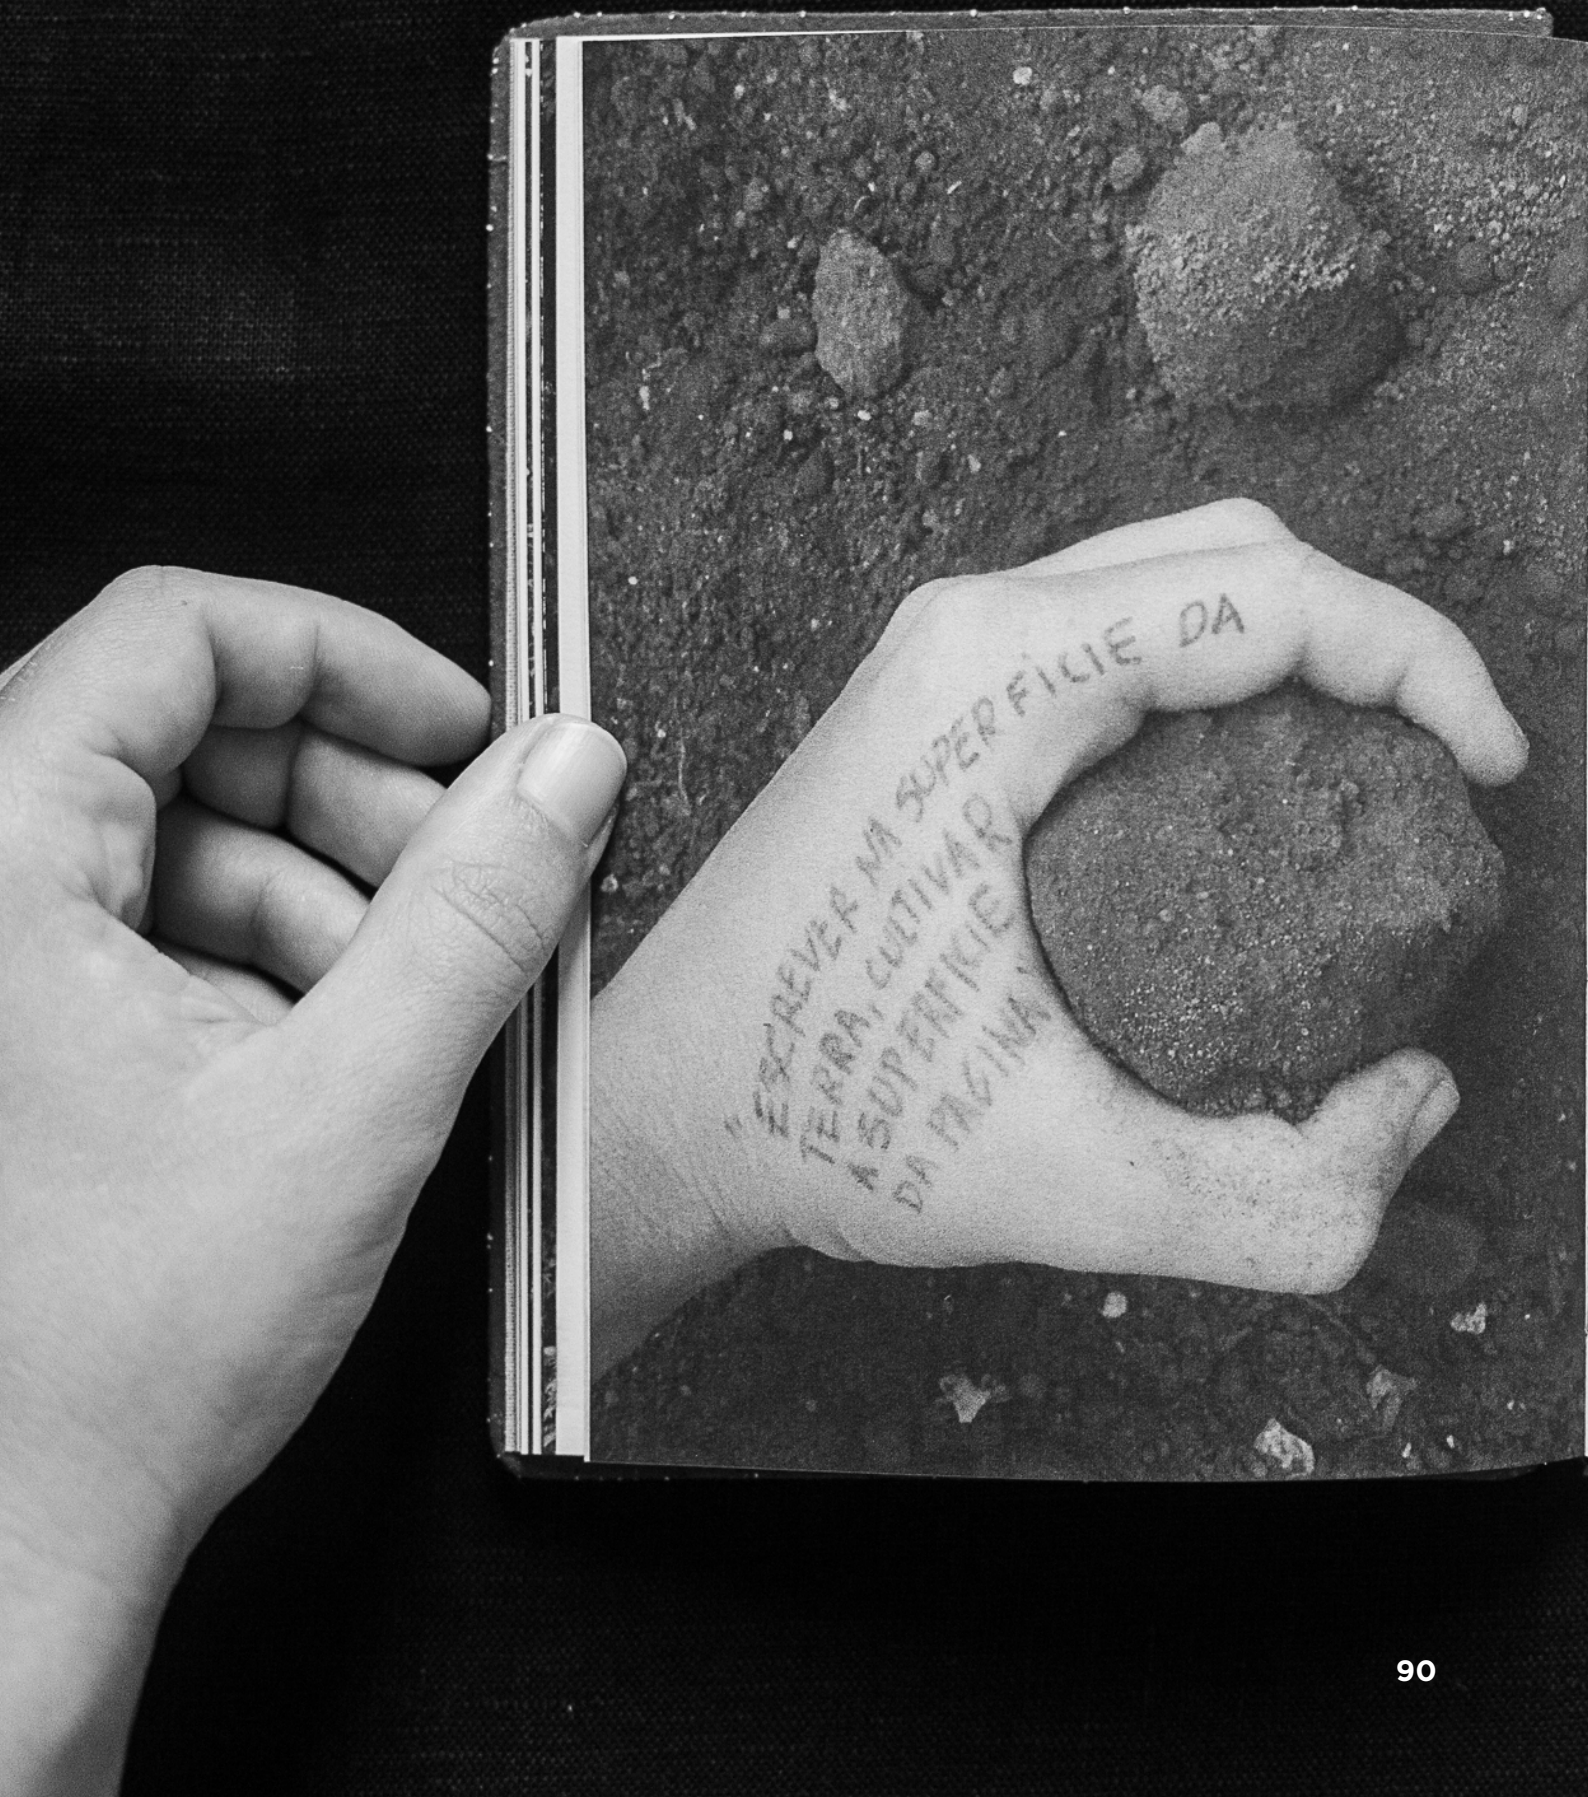 "ESCREVER NA SUPERFÍCIE DA
TERRA, CULTIVAR
A SUPERFÍCIE
DA PAGINA,
90